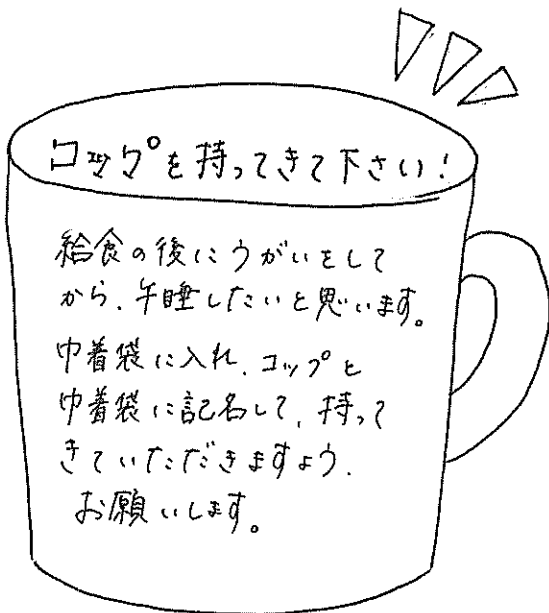 コップを持ってきて下さい!
給食の後にうがいをして
から、午睡したいと思います。
巾着袋に入れ、コップと
巾着袋に記名して、持って
きていただきますよう、
お願いします。